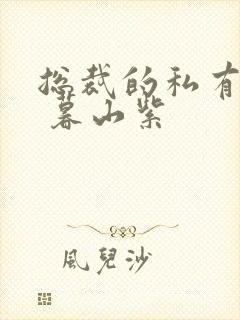 总裁的私有
暮山紫
風兒沙